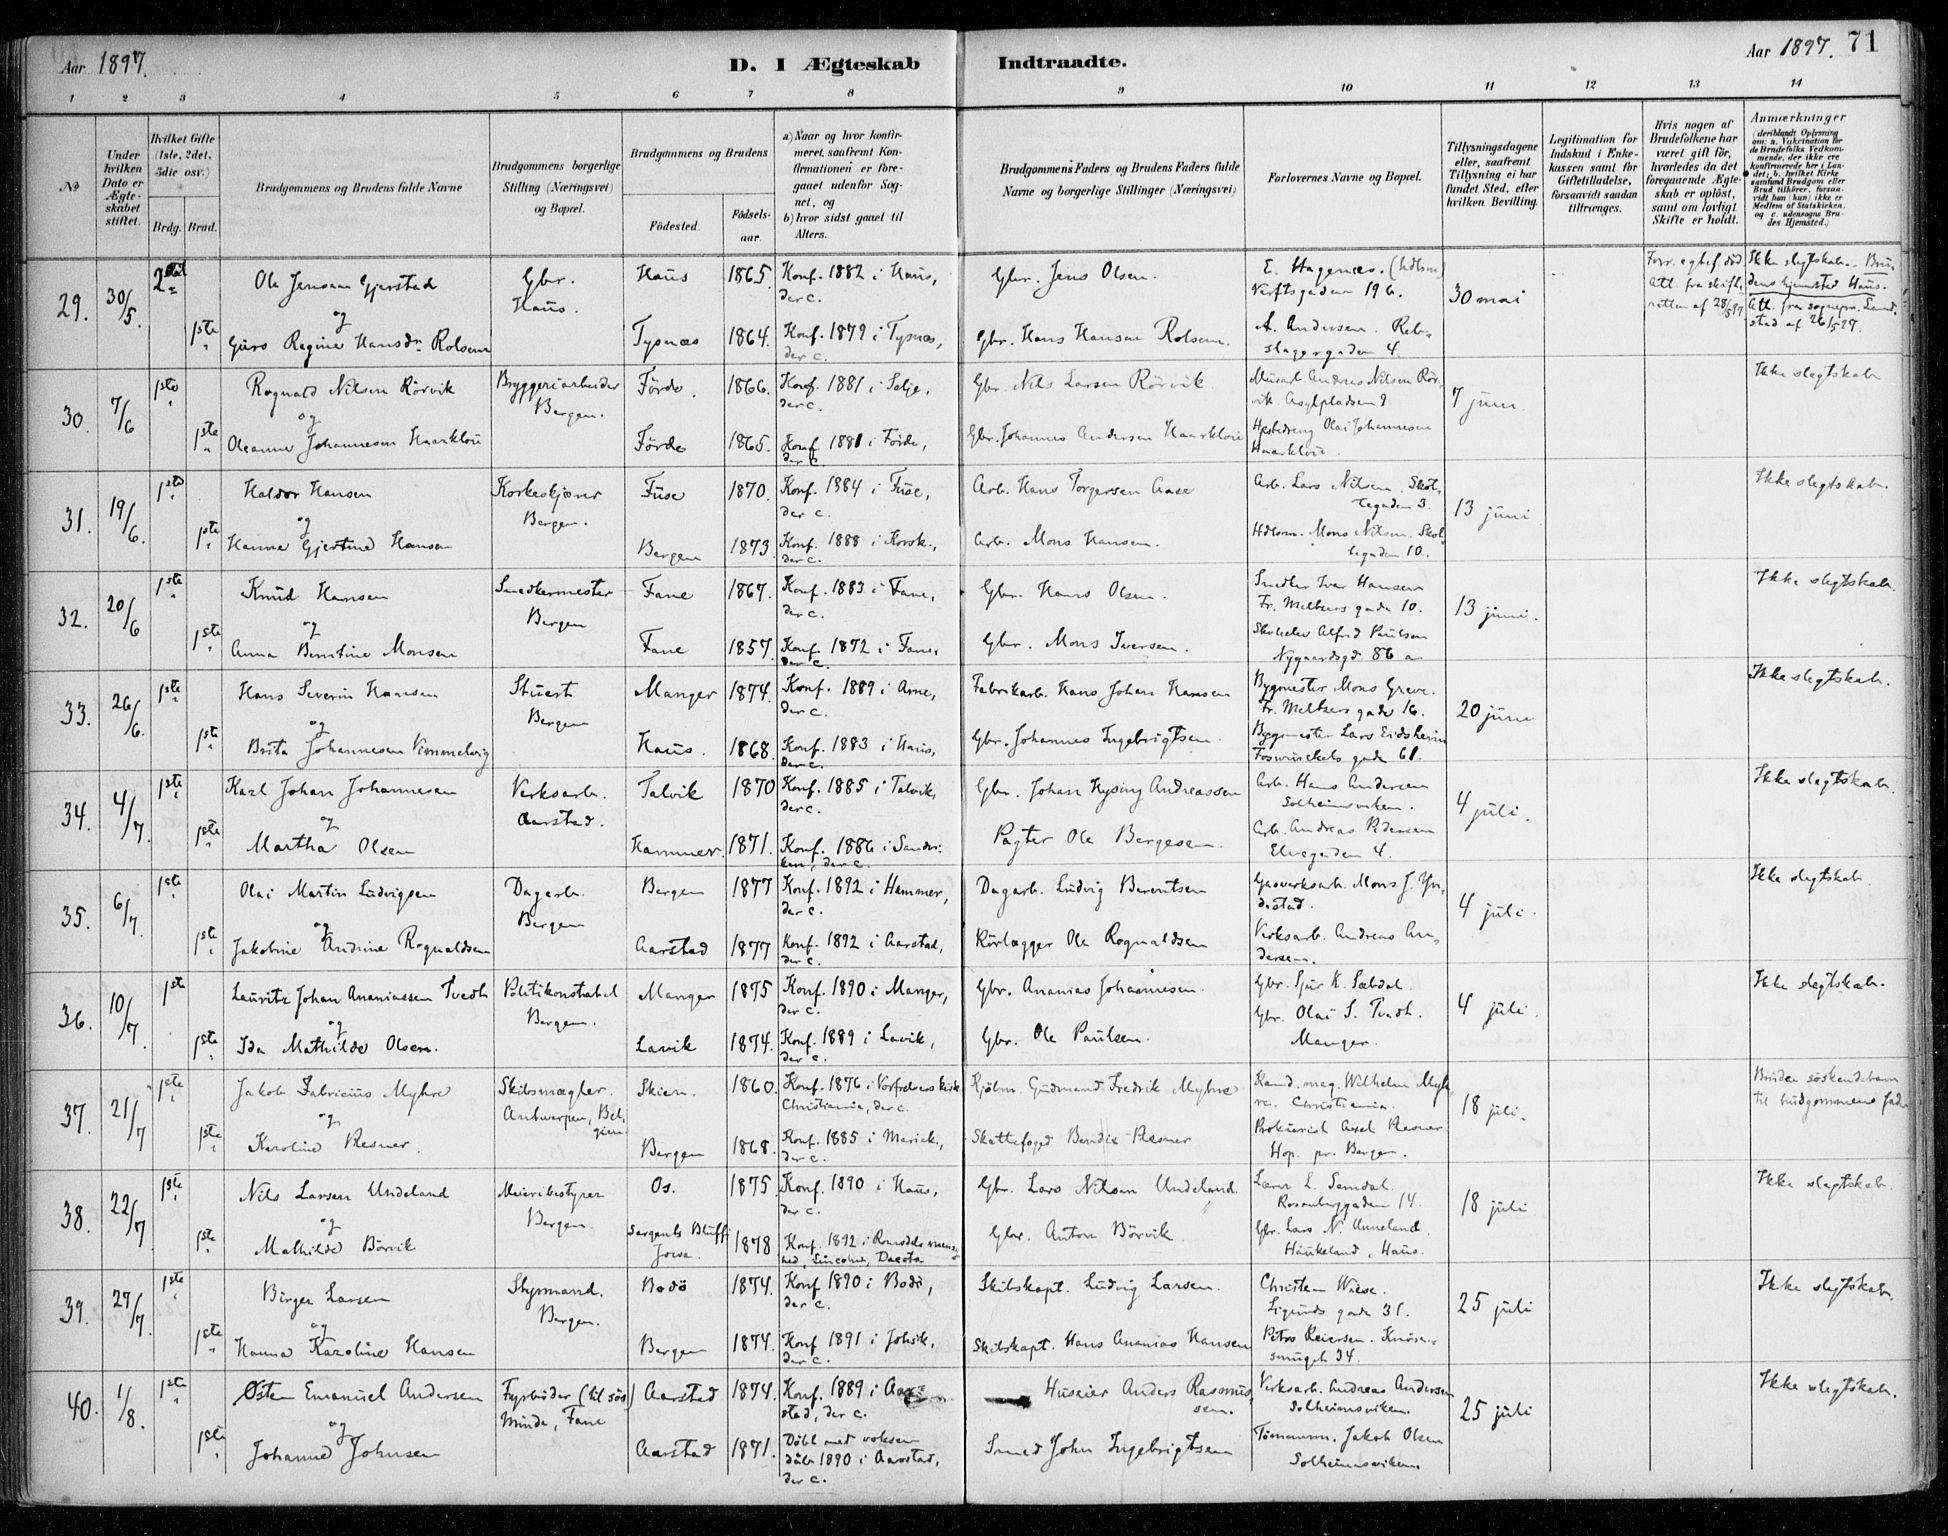 Aar 1897.
D. I Ægteskab Indtraadte.
Aar 1897. 71
1 2 3 4 5 6 7 8 9 10 11 12 13 14
No
Under hvilken Dato er Ægteskabet stiftet.
Hvilket Gifte (1ste, 2det, 3die osv.)
Brdg. Brud.
Brudgommens og Brudens fulde Navne
Brudgommens borgerlige Stilling (Næringsvei) og Bopæl.
Brudgommens og Brudens
Födested. Födsels-aar.
a) Naar og hvor konfirmeret, saafremt Konfirmationen er foregaaet udenfor Sognet, og
b) hvor sidst gaaet til Alters.
Brudgommens Faders og Brudens Faders fulde Navne og borgerlige Stillinger (Næringsvei)
Forlovernes Navne og Bopæl.
Tillysningsdagene eller, saafremt Tillysning ei har fundet Sted, efter hvilken Bevilling.
Legitimation for Indskud i Enkekassen samt for Giftetilladelse, forsaavidt saadan tiltrænges.
Hvis nogen af Brudefolkene har været gift før, hvorledes da det foregaaende Ægteskab er oplöst, samt om lovligt Skifte er holdt.
Anmærkninger
(deriblandt Oplysning om: a. Vakcination for de Brudefolks Vedkommende, der ikke ere konfirmerede her i Landet; b. hvilket Kirkesamfund Brudgom eller Brud tilhörer, forsaavidt han (hun) ikke er Medlem af Statskirken, og c. udensogns Brudes Hjemsted.)
29. 30/5. 2det Ole Jensen Gjerstad Gbr. Haus. Haus 1865. Konf. 1882 i Haus, der c. Gbr. Jens Olsen. E. Hagenæs. Verftsgaden 19 b. 30 mai
Ikke slegtskab. Brudens hjemsted Haus.
og
1ste Guro Regine Hansdr. Rolsem Tysnæs 1864. Konf. 1879 i Tysnæs, der c. Gbr. Hans Hansen Rolsem. A. Andersen. Rebslagergaden 4.
30. 7/6 1ste Rognald Nilsen Rörvik Bryggeriarbeider Bergen. Förde. 1866. Konf. 1881 i Selje, der c. Gbr. Nils Larsen Rörvik Andreas Nilsen Rörvik. Asylpladsen 9 7 juni. Ikke slegtskab
og
1ste Oleanna Johannesen Haarklou Förde 1865. Konf. 1881 i Förde, der c. Gbr. Johannes Andersen Haarklou Olai Johannesen Haarklou.
31. 19/6. 1ste Haldor Hansen Korkeskjærer Bergen. Fuse 1870. Konf. 1884 i Fuse, der c. Arb. Hans Torgersen Aase Arb. Lars Nilsen. Skoltegaden 3. 13 juni Ikke slegtskab.
og
1ste Hanna Gjertine Hansen Bergen 1873. Konf. 1888 i Korsk., der c. Arb. Mons Hansen. Mons Nilsen. Skoltegaden 10.
32. 20/6 1ste Knud Hansen Snedkermester Bergen Fane 1867. Konf. 1883 i Fane, der c. Gbr. Hans Olsen. Snedker Iver Hansen Fr. Meltzers gade 10. 13 juni. Ikke slegtskab.
og
1ste Anna Berntine Monsen Fane 1857. Konf. 1872 i Fane, der c. Gbr. Mons Iversen. Alfred Paulsen Nygaardsgd. 86 a
33. 26/6. 1ste Hans Severin Hansen Stuert Bergen Manger 1874. Konf. 1889 i Arne, der c. Fabrikarb. Hans Johan Hansen Bygmester Mons Greve. Fr. Meltzers gade 16. 20 juni Ikke slegtskab.
og
1ste Brita Johannesen Vimmelvig Haus. 1868. Konf. 1883 i Haus, der c. Gbr. Johannes Ingebrigtsen. Bygmester Lars Eidsheim Foswinckels gade 61.
34. 4/7. 1ste Karl Johan Johannesen Verksarb. Aarstad. Talvik 1870 Konf. 1885 i Talvik, der c. Gbr. Johan Hysing Andreassen Arb. Hans Andersen Solheimsviken. 4 juli. Ikke slegtskab.
og
1ste Martha Olsen Hammer. 1871. Konf. 1886 i Sandviken, der c. Pagter Ole Bergesen. Arb. Andreas Pedersen Elvegaden 4.
35. 6/7. 1ste Olai Martin Ludvigsen Dagarb. Bergen Bergen 1877 Konf. 1892 i Hammer, der c. Dagarb. Ludvig Berentsen Gasverksarb. Mons J. Yndestad. 4 juli. Ikke slegtskab.
og
1ste Jakobine Andrine Rognaldsen Aarstad 1877 Konf. 1892 i Aarstad, der c. Rörlægger Ole Rognaldsen Verksarb. Andreas Andersen.
36. 10/7. 1ste Lauritz Johan Ananiassen Tvedt Politikonstabel Bergen. Manger 1875 Konf. 1890 i Manger, der c. Gbr. Ananias Johannesen. Gbr. Sjur K. Sæbdal. 4 juli. Ikke slegtskab.
og
1ste Ida Mathilde Olsen. Lavik 1874. Konf. 1889 i Lavik, der c. Gbr. Ole Paulsen. Gbr. Olai S. Tvedt. Manger.
37. 21/7 1ste Jakob Fabricius Myhre Skibsmægler. Antwerpen, Belgien. Skien. 1860. Konf. 1876 i Vorfrelsers kirke Christiania, der c. Kjöbm. Gudmand Fredrik Myhre Kand. mag. Wilhelm Myhre. Christiania. 18 juli. Bruden söskendebarn til brudgommens fader
og
1ste Karoline Resner. Bergen 1868. Konf. 1885 i Mariek., der c. Skattefoged Bendix Resner Prokurist Axel Resner. Hop. pr. Bergen.
38. 22/7. 1ste Nils Larsen Undeland Meieribestyrer Bergen. Os. 1875 Konf. 1890 i Haus, der c. Gbr. Lars Nilsen Undeland. Lærer L. Samdal. Rosenberggaden 14. 18 juli Ikke slegtskab.
og
1ste Mathilde Börvik Sergents Bluff Jowa. 1878 Konf. 1892 i Romsdals menighed, Lincoln, Dacota Gbr. Anton Börvik. Gbr. Lars N. Unneland. Haukeland, Haus.
39. 27/7. 1ste Birger Larsen Styrmand. Bergen. Bodö 1874. Konf 1890 i Bodö, der c. Skibskapt. Ludvig Larsen. Christen Wiese. Sigurds gade 31. 25 juli Ikke slegtskab.
og
1ste Hanna Karoline Hansen Bergen 1874. Konf 1891 i Johsk., der c. Skibskapt. Hans Ananias Hansen Petra Reiersen. Knösesmuget 34.
40. 1/8. 1ste Östen Emanuel Andersen Fyrböder (til sös) Minde, Fane Aarstad 1874. Konf. 1889 i Aarstad, der c. Huseier Anders Rasmussen. Verksarb. Andreas Andersen Solheimsviken. 25 juli Ikke slegtskab.
og
1ste Johanne Johnsen Aarstad 1871. Döbt med voksen daab 1890 i Aarstad, der c. Smed John Ingebrigtsen Tömmerm. Jakob Olsen Solheimsviken.